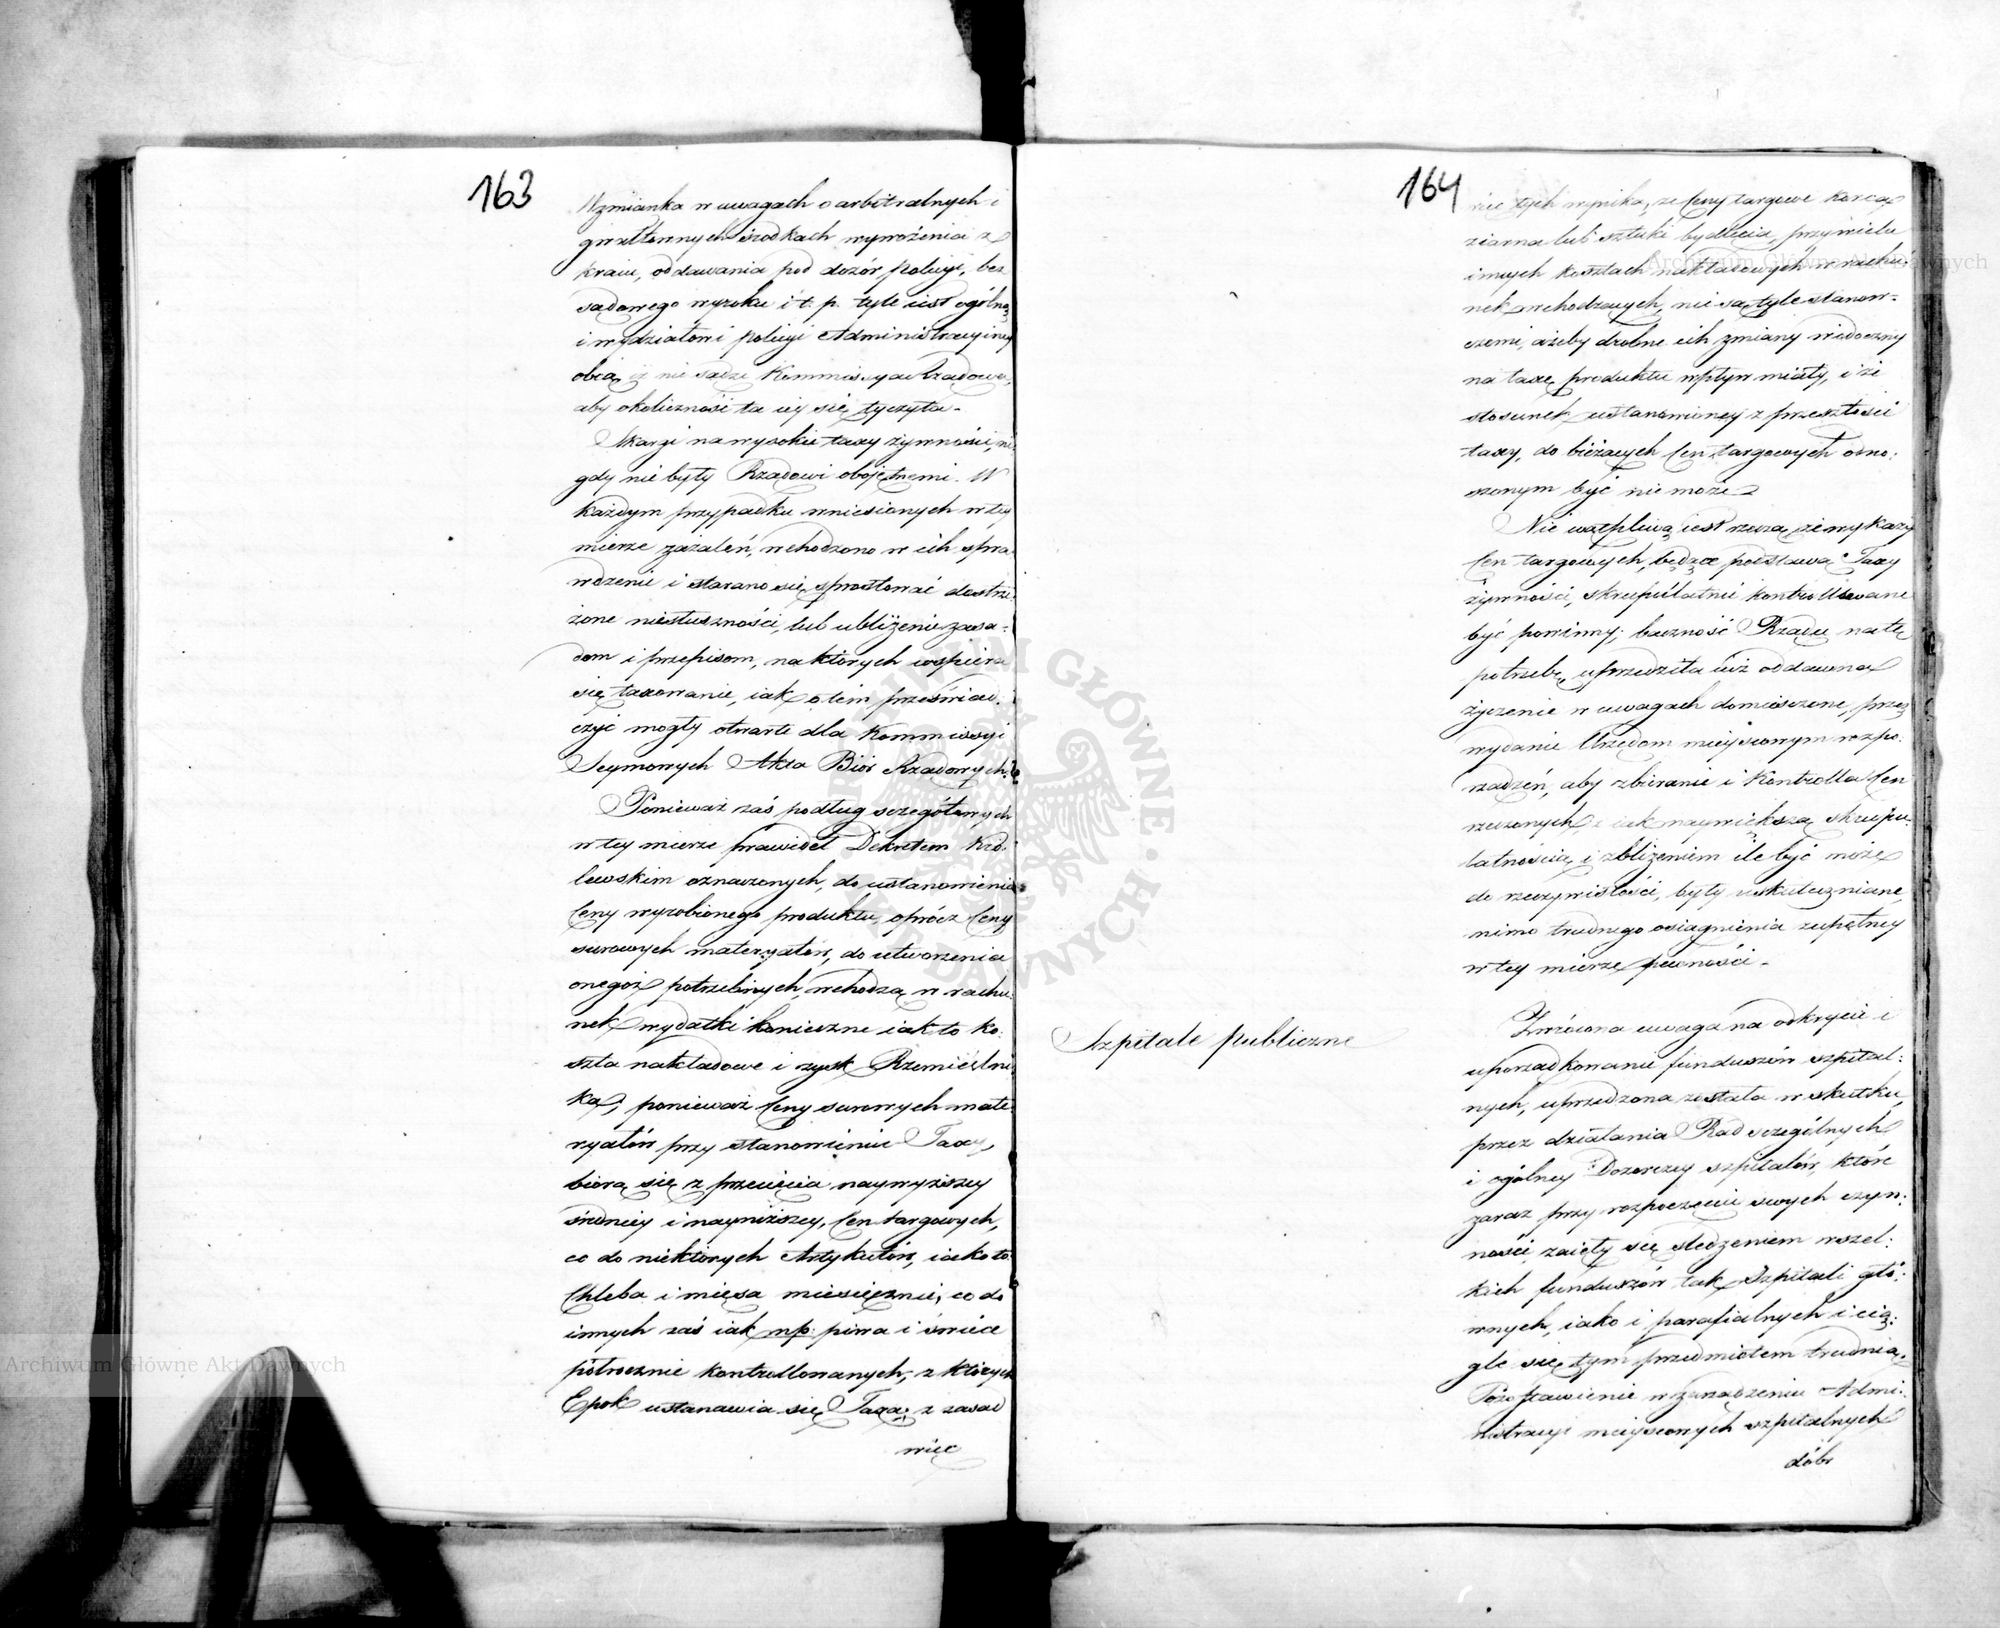 163
Wzmianka w uwagach o arbitralnych i
gwałtownych środkach wywożenia z
kraiu, oddawania pod dozór Policyi, bez
sądowego wyroku i t. p. tyle iest ogólną
i wydziałowi Policyi Administracyiney
obcą, iż nie sądzi Kommissya Rządowa,
aby okoliczność ta iey się tyczyła.
Skargi na wysokie taxy żywności, ni-
gdy nie były Rządowi oboiętnemi. W
każdym przypadku wniesionych w tey
mierze zażaleń, wchodzono w ich spra-
wdzenie i starano się sprostować dostrze-
żone niesłuszności, lub ubliżenie zasa-
dom i przepisom, na których wspiera
się taxowanie, iak o tém przeświad-
czyć mogły otwarte dla Kommissyi
Seymowych Akta Biór Rządowych.
Ponieważ zaś podług szczegółowych
w tey mierze prawideł Dekretem Kró-
lewskim oznaczonych, do ustanowienia
Ceny wyrobionego produktu, oprócz Ceny
surowych materyałów, do utworzenia
onegoż potrzebnych, wchodzą w rachu-
nek wydatki konieczne iak to ko-
szta nakładowe i zysk Rzemieślni-
ka; ponieważ Ceny surowych mate-
ryałów przy stanowieniu Taxy,
biorą się z przecięcia naywyższey
średniey i nayniższey, Cen targowych,
co do niektórych Artykułów, iako to
Chleba i mięsa miesięcznie, co do
innych zaś iak np: piwa i świéce
półrocznie kontrollowanych, z których
Epok ustanawia się Taxa; z zasad
więc
164
nie tych wynika, że Ceny targowe korca
ziarna lub sztuki bydlęcia, przy wielu
innych kosztach nakładowych w rachu-
nek wchodzących, nie są tyle stanow-
czemi, ażeby drobne ich zmiany widoczny
na taxę produktu wpływ miały, i że
stosunek ustanowioney z przeszłości
taxy, do bieżących Cen targowych odno-
szonym być nie może.
Nie wątpliwą iest rzeczą, że wykazy
Cen targowych, będące podstawą Taxy
żywności, skrupulatnie kontrollowane
być powinny; baczność Rządu na tę
potrzebę, uprzedziła iuż oddawna
życzenie w uwagach domieszczone, przez
wydanie Urzędom mieyscowym rozpo-
rządzeń, aby zbieranie i kontrolla Cen
rzeczonych z iak naywiększą skrupu-
latnością i zbliżeniem ile być może
do rzeczywistości, były uskuteczniane,
mimo trudnego osiągnienia zupełney
w tey mierze pewności.
Szpitale publiczne
Zwrócona uwaga na odkrycie i
uporządkowanie funduszów szpital-
nych, uprzedzona została w skutku,
przez działania Rad szczególnych
i ogólney Dozorczey szpitalów, które
zaraz przy rozpoczęciu swych czyn-
ności zaięły się śledzeniem wszel-
kich funduszów tak Szpitali głó-
wnych, iako i parafialnych i cią-
gle się tym przedmiotem trudnią.
Pozostawienie w zarządzeniu Admi-
nistracyi mieyscowych szpitalnych
dóbr
Archiwum Główne Akt Dawnych
Archiwum Główne Akt Dawnych
ARCHIWUM GŁÓWNE AKT DAWNYCH